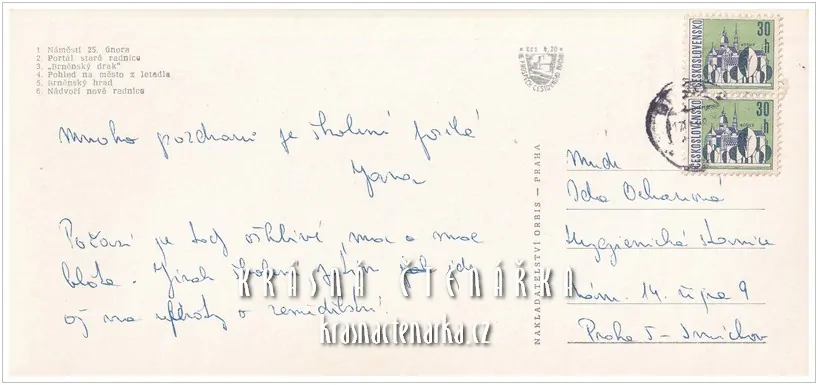 1 Náměstí 25. února
2 Portál staré radnice
3 „Brněnský drak"
4 Pohled na město z letadla
5 Brněnský hrad
6 Nádvoří nové radnice
Kčs 1,20
ČESKOSLOVENSKO
30 h
ČESKOSLOVENSKO
30 h
Mnoho pozdravů ze školení posílá
Jana
Počasí je tady ošklivé, moc a moc
bláta. Jinak školení
o zemědělství.
NAKLADATELSTVÍ ORBIS — PRAHA
Ida
Hygienická stanice
nám. 14. října 9
Praha 5 - Smíchov
KRÁSNÁ ČTENÁŘKA
krasnactenarka.cz